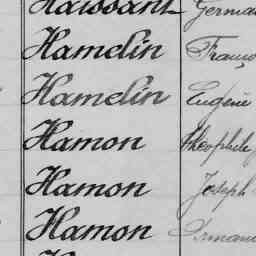 Haissant Germa
Hamelin Franço
Hamelin Eugène
Hamon Théophile
Hamon Joseph
Hamon